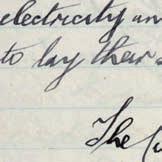 electricity an
to lay their
The